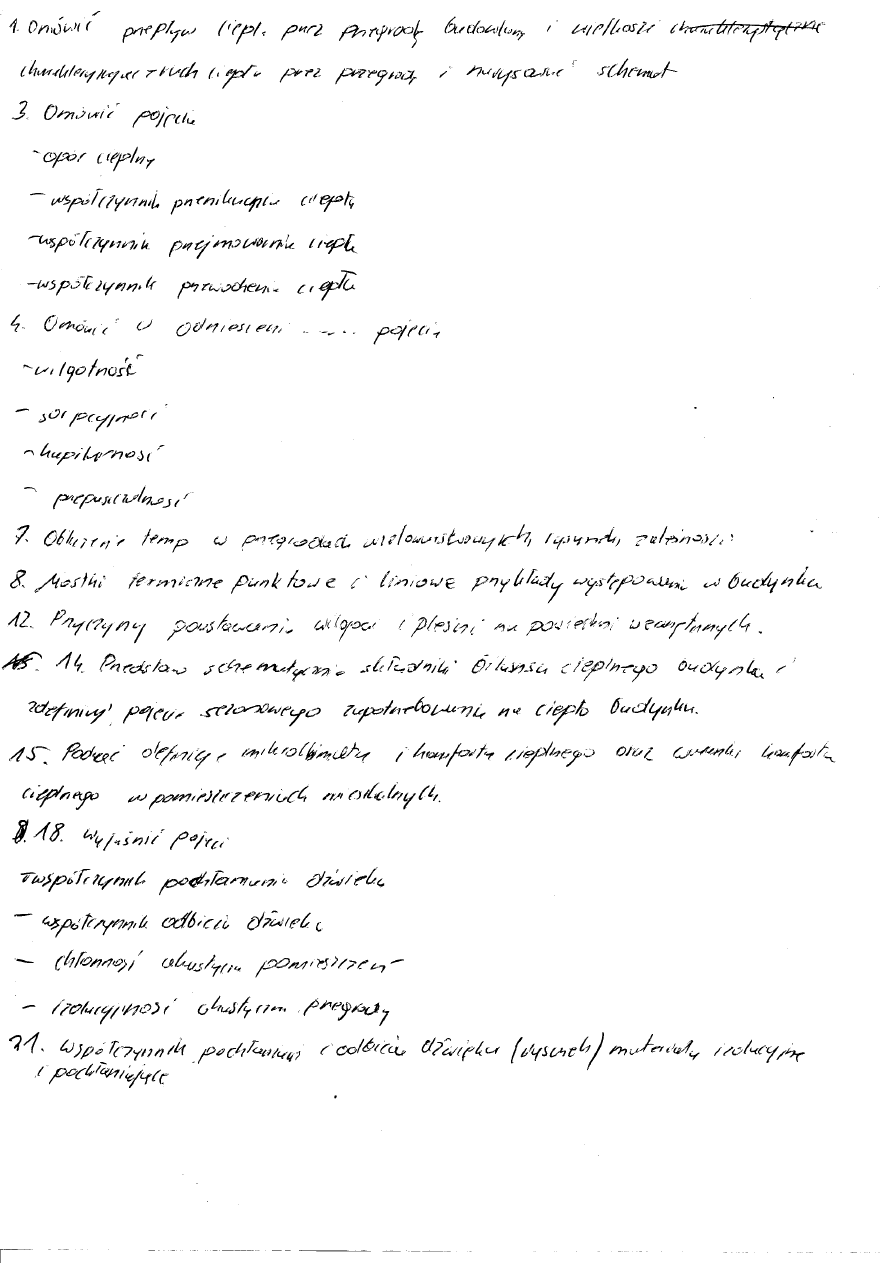 1. Omówić przepływ ciepła przez przegrodę budowlaną i wielkości charakterystyczne
charakteryzujące ruch ciepła przez przegrodę i narysować schemat
3. Omówić pojęcia
- opór cieplny
- współczynnik przenikania ciepła
- współczynnik przejmowania ciepła
- współczynnik przewodzenia ciepła
4. Omówić w odniesieniu ..... pojęcia
- wilgotność
- sorpcyjność
- kapilarność
- przepuszczalność
7. Obliczenie temp w przegrodach wielowarstwowych, rysunek, zależności
8. Mostki termiczne punktowe i liniowe przykłady występowania w budynku
12. Przyczyny powstawania wilgoci i pleśni na powierzchni wewnętrznych.
14. Przedstaw schematycznie składniki bilansu cieplnego budynku i
zdefiniuj pojęcie sezonowego zapotrzebowania na ciepło budynku.
15. Podać definicję mikroklimatu i komfortu cieplnego oraz warunki komfortu
cieplnego w pomieszczeniach mieszkalnych.
18. Wyjaśnić pojęci
- współczynnik pochłaniania dźwięku
- współczynnik odbicia dźwięku
- chłonność akustyczna pomieszczeń
- izolacyjność akustyczna przegrody
21. Współczynnik pochłaniania i odbicia dźwięku (rysunek) materiały izolacyjne
i pochłaniające